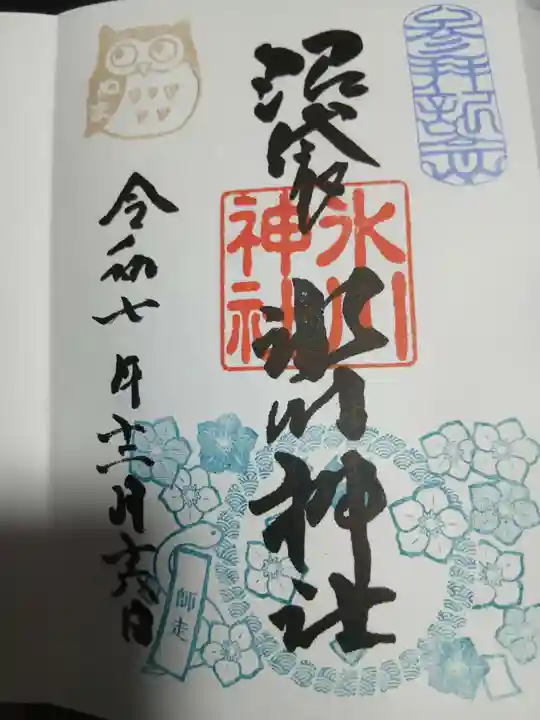 参拝記念
沼袋
氷川神社
氷川
神社
令和七年十二月十六日
師走